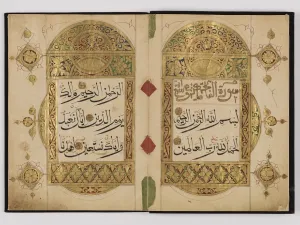 سورة الفاتحة
بسم الله الرحمن الرحيم
الحمد لله رب العالمين
الرحمن الرحيم ملك
يوم الدين اياك نعبد
واياك نستعين اهدنا